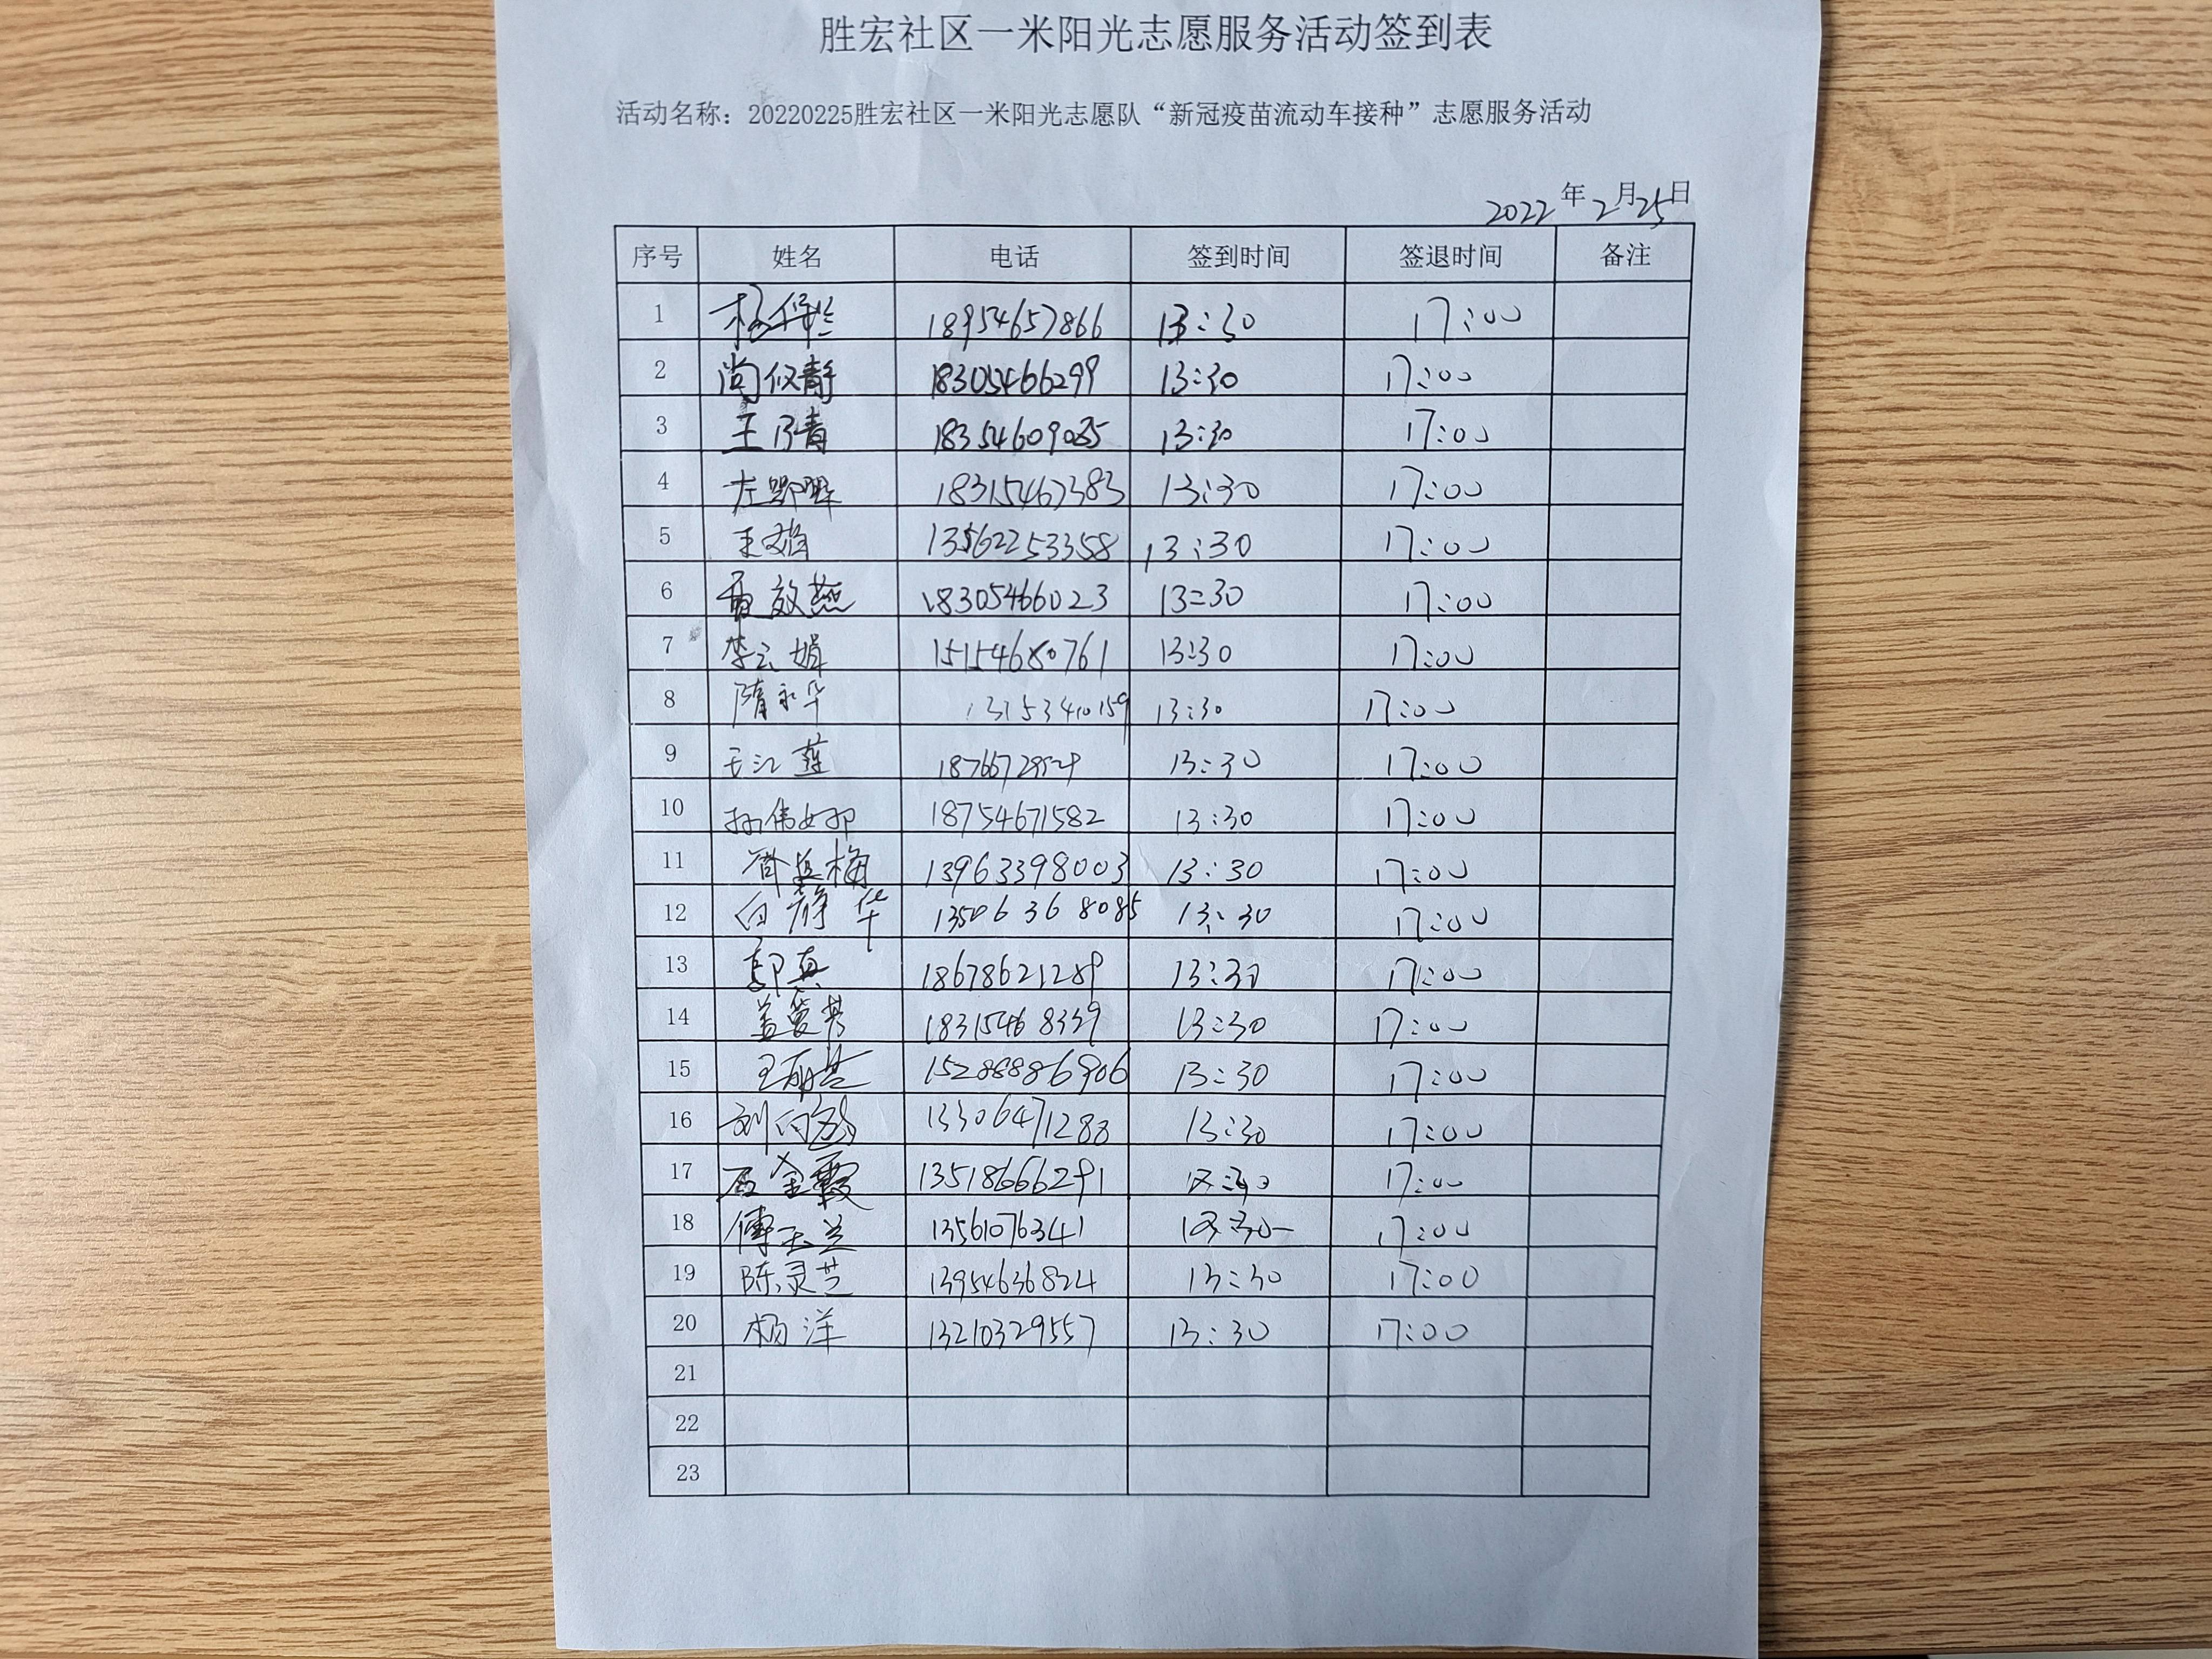 胜宏社区一米阳光志愿服务活动签到表
活动名称：20220225胜宏社区一米阳光志愿队“新冠疫苗流动车接种”志愿服务活动
2022年2月25日
序号 姓名 电话 签到时间 签退时间 备注
1 18954657866 13:30 17:00
2 尚仪静 18305466299 13:30 17:00
3 王乃青 18354609085 13:30 17:00
4 18315467383 13:30 17:00
5 13562253358 13:30 17:00
6 18305466023 13:30 17:00
7 李云娟 15154680761 13:30 17:00
8 隋永华 13:30 17:00
9 王江莲 13:30 17:00
10 18754671582 13:30 17:00
11 13963398003 13:30 17:00
12 白静华 13506368085 13:30 17:00
13 郭真 18678621289 13:30 17:00
14 盖爱芳 13:30 17:00
15 15288886906 13:30 17:00
16 13306471288 13:30 17:00
17 石金霞 13518666291 17:00
18 傅玉兰 13561076341 17:00
19 陈灵芝 13954636824 13:30 17:00
20 杨洋 13210329557 13:30 17:00
21
22
23